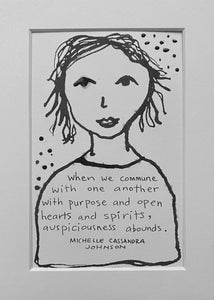 When we commune
with one another
with purpose and open
hearts and spirits,
auspiciousness abounds.
MICHELLE CASSANDRA
JOHNSON